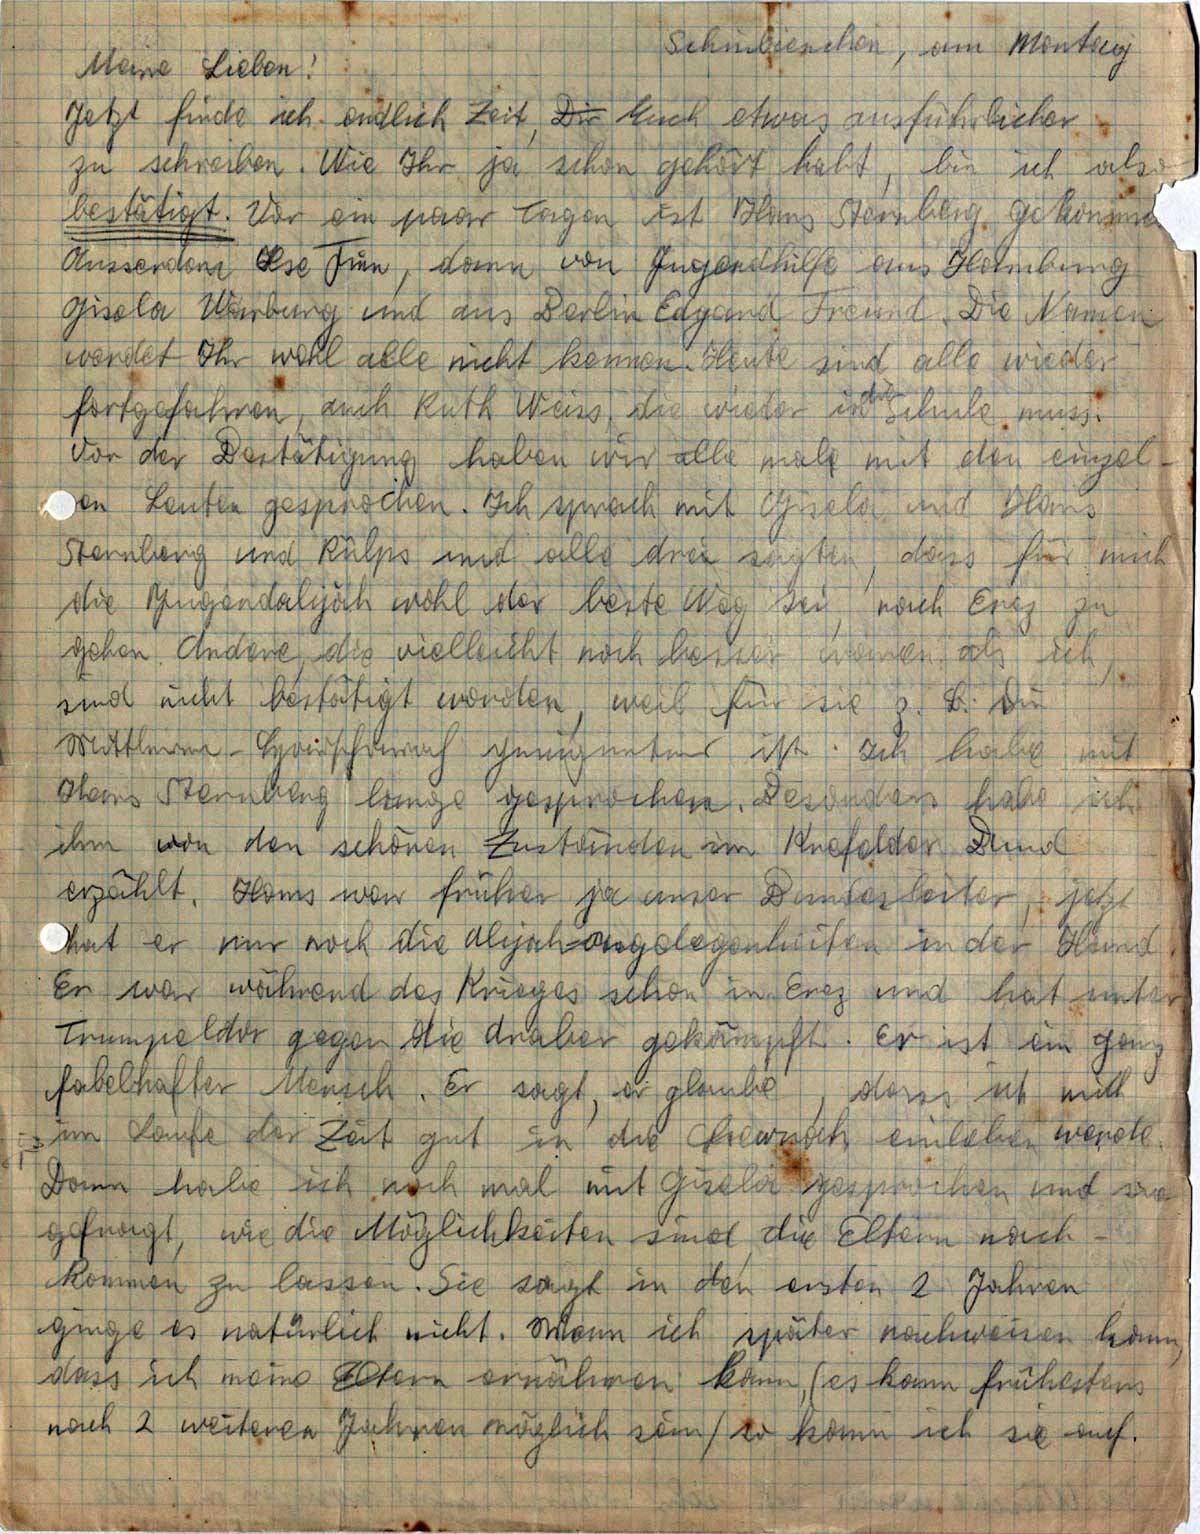 Schniebinchen, am Montag
Meine Lieben!
Jetzt finde ich endlich Zeit, Dir Euch etwas ausführlicher
zu schreiben. Wie Ihr ja schon gehört habt, bin ich also
bestätigt. Vor ein paar Tagen ist Hans Sternberg gekommen
Ausserdem Ilse, dann von Jugendhilfe aus Hamburg
Gisela Warburg und aus Berlin Edgard Freund. Die Namen
werdet Ihr wohl alle nicht kennen. Heute sind alle wieder
fortgefahren, auch Ruth Weiss, die wieder in die Schule muss.
Vor der Bestätigung haben wir alle male mit den einzel-
en Leuten gesprochen. Ich sprach mit Gisela und Hans
Sternberg und Külps und alle drei sagten, dass für mich
die Jugendalijah wohl der beste Weg sei, nach Erez zu
gehen. Andere, die vielleicht noch besser waren als ich,
sind nicht bestätigt worden, weil für sie z. B. die
Mittleren-Hachscharah geeigneter ist. Ich habe mit
Hans Sternberg lange gesprochen. Besonders habe ich
ihm von den schönen Zuständen im Krefelder Bund
erzählt. Hans war früher ja unser Bundesleiter, jetzt
hat er nur noch die Alijah-angelegenheiten in der Hand.
Er war während des Krieges schon in Erez und hat unter
Trumpeldor gegen die Araber gekämpft. Er ist ein ganz
fabelhafter Mensch. Er sagt, er glaube, dass ich mich
im Laufe der Zeit gut in die Chewrah einleben werde.
Dann habe ich noch mal mit Gisela gesprochen und sie
gefragt, wie die Möglichkeiten sind, die Eltern nach-
kommen zu lassen. Sie sagt in den ersten 2 Jahren
ginge es natürlich nicht. Wenn ich später nachweisen kann,
dass ich meine Eltern ernähren kann, (es kann frühestens
nach 2 weiteren Jahren möglich sein) so kann ich sie auf.